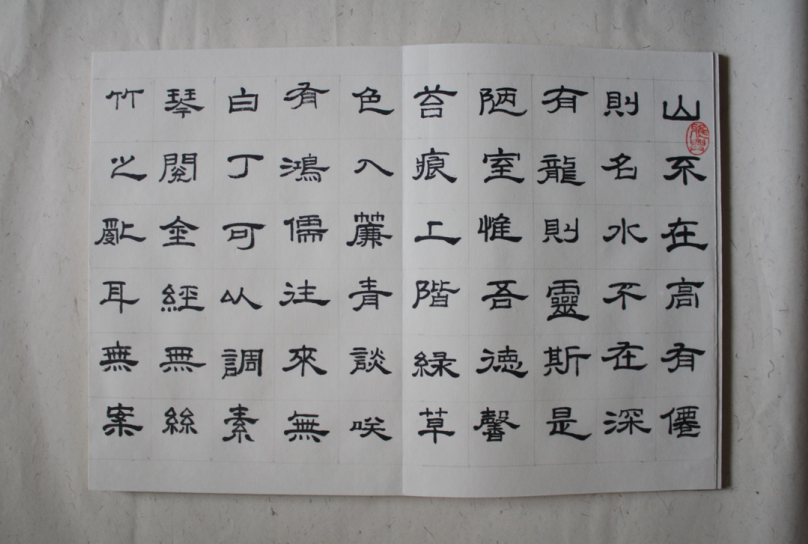 山不在高有僊
則名水不在深
有龍則靈斯是
陋室惟吾德馨
苔痕上階綠草
色入簾青談咲
有鴻儒往來無
白丁可以調素
琴閱金經無絲
竹之亂耳無案